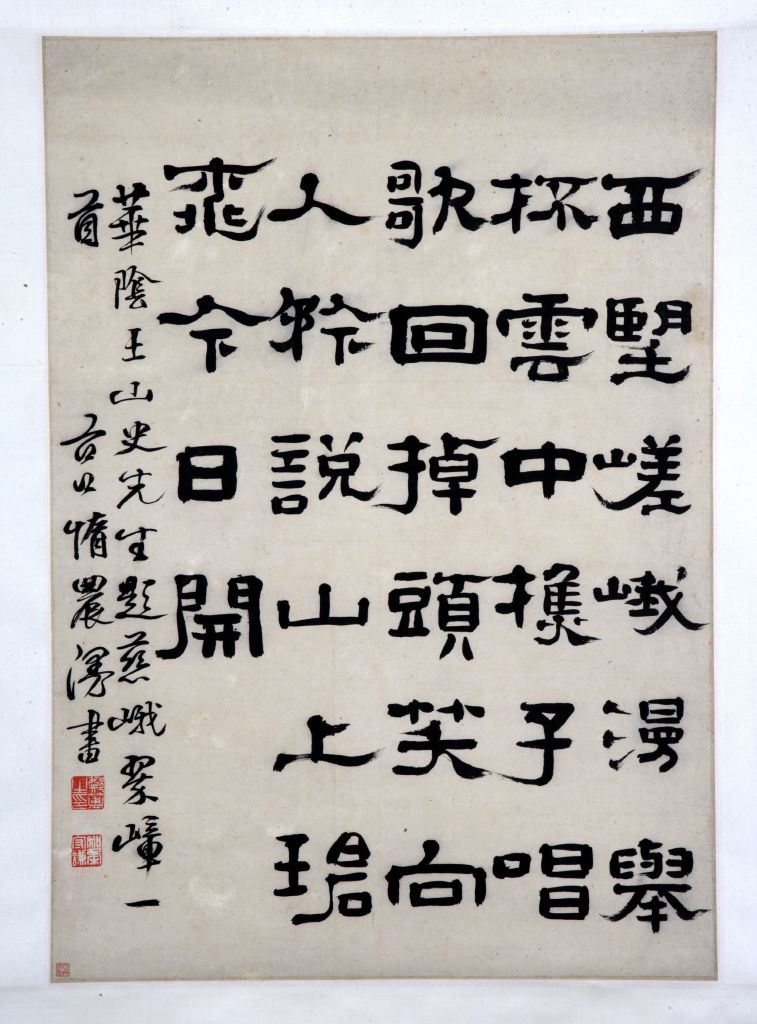 西望嵯峨漫舉
杯雲中樵子唱
歌回掉頭笑向
人說山上
今日開
華陰王山史先生題慈峨翠嶂一
首
谷口惰農書